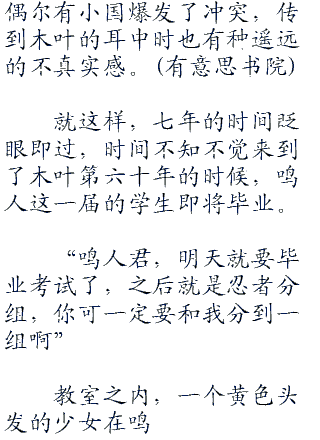 偶尔有小国爆发了冲突，传
到木叶的耳中时也有种遥远
的不真实感。(有意思书院)
就这样，七年的时间眨
眼即过，时间不知不觉来到
了木叶第六十年的时候，鸣
人这一届的学生即将毕业。
“鸣人君，明天就要毕
业考试了，之后就是忍者分
组，你可一定要和我分到一
组啊”
教室之内，一个黄色头
发的少女在鸣